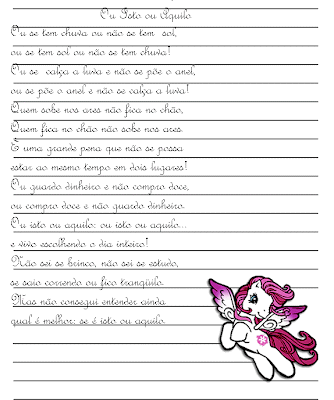 Ou Isto ou Aquilo
Ou se tem chuva ou não se tem sol,
ou se tem sol ou não se tem chuva!
Ou se calça a luva e não se põe o anel,
ou se põe o anel e não se calça a luva!
Quem sobe nos ares não fica no chão,
Quem fica no chão não sobe nos ares.
É uma grande pena que não se possa
estar ao mesmo tempo em dois lugares!
Ou guardo dinheiro e não compro doce,
ou compro doce e não guardo dinheiro.
Ou isto ou aquilo: ou isto ou aquilo...
e vivo escolhendo o dia inteiro!
Não sei se brinco, não sei se estudo,
se saio correndo ou fico tranqüilo.
Mas não consegui entender ainda
qual é melhor: se é isto ou aquilo.